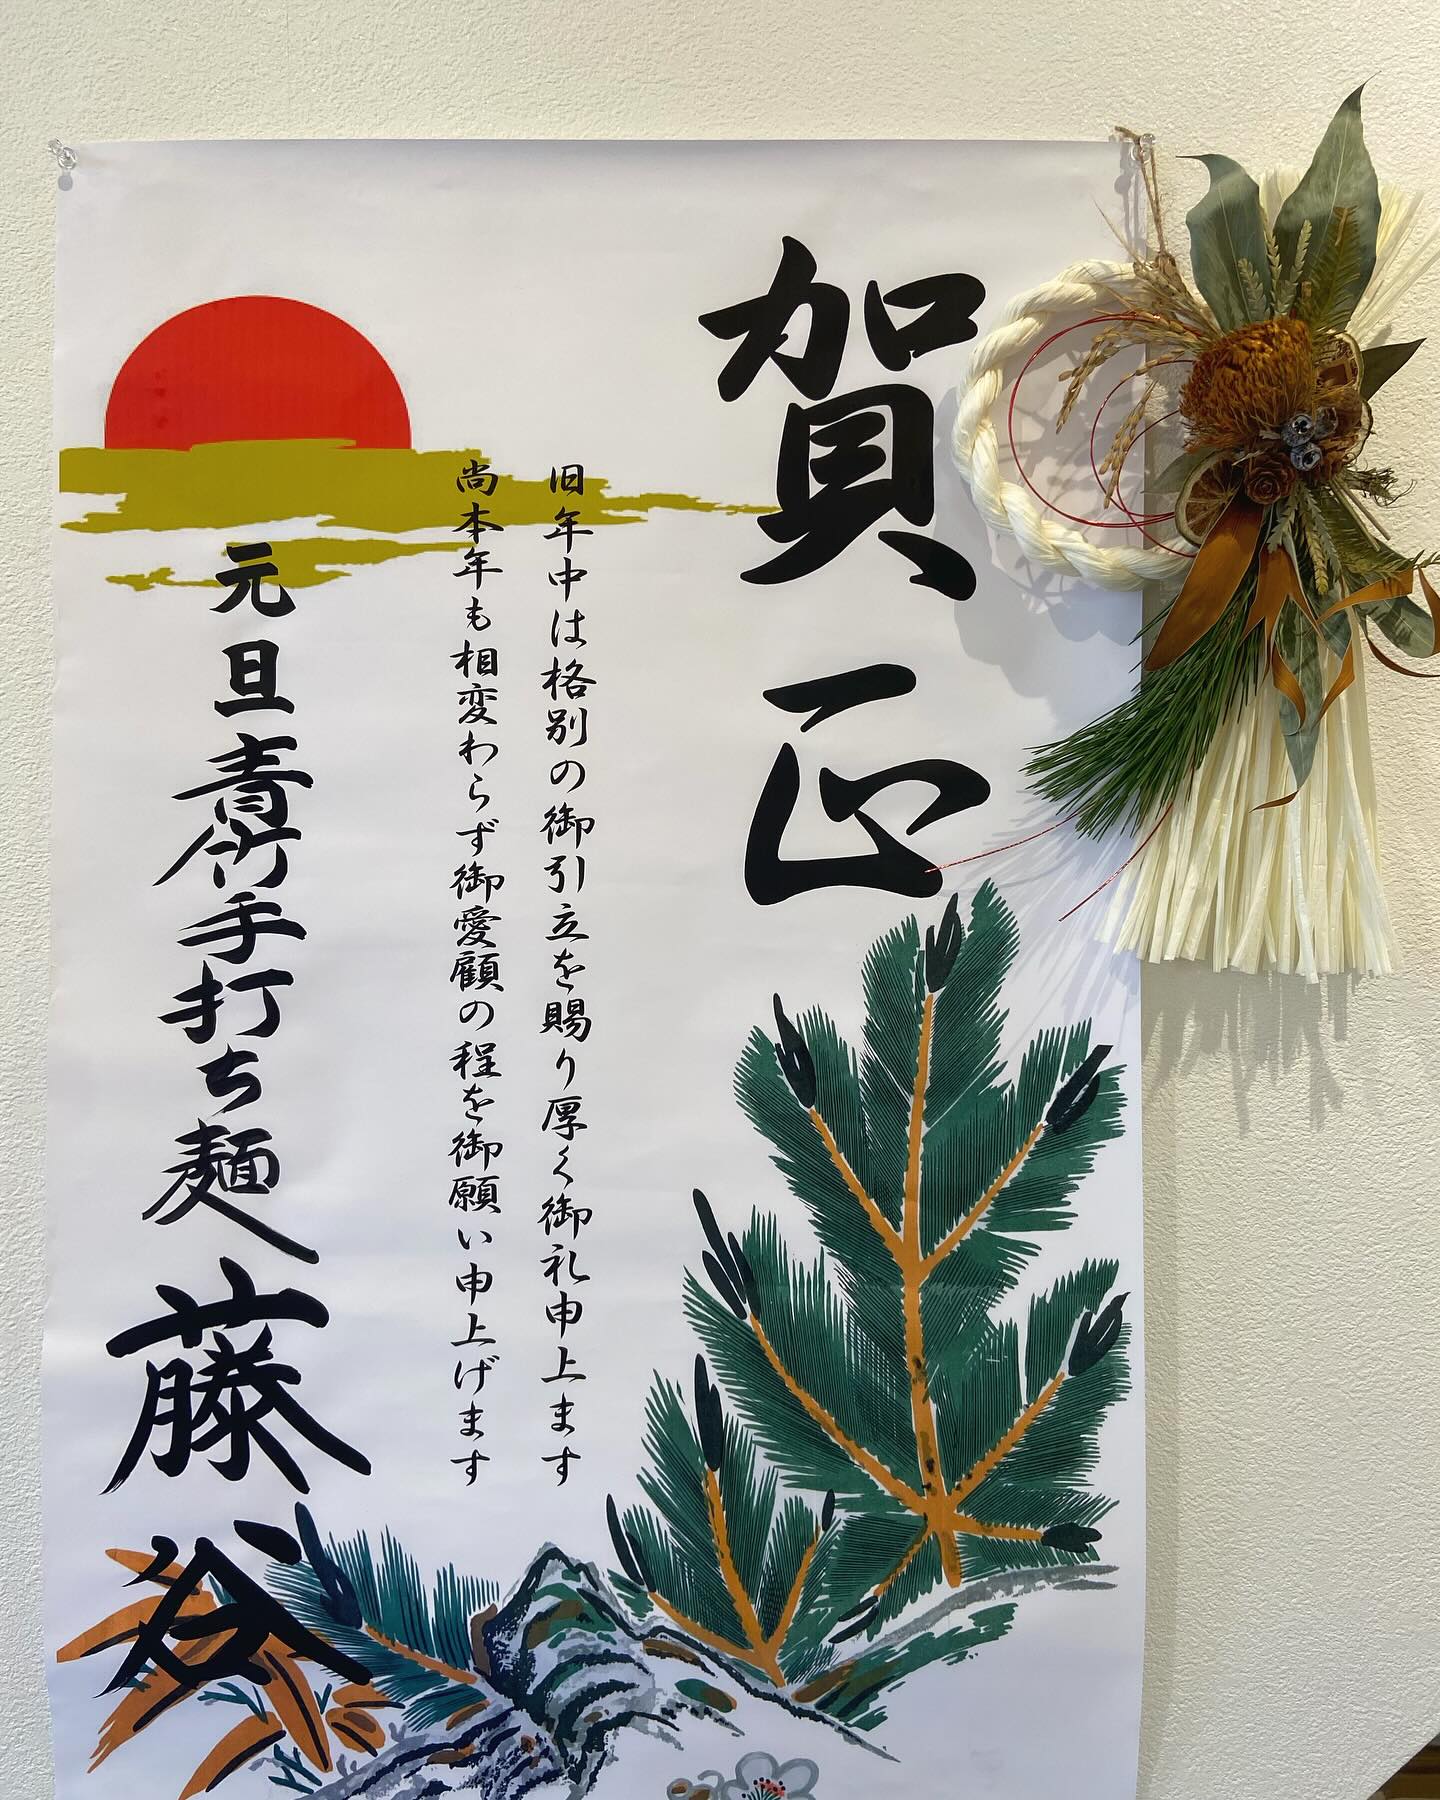 賀正
旧年中は格別の御引立を賜り厚く御礼申上ます
尚本年も相変わらず御愛顧の程を御願い申上げます
元旦
青竹手打ち麺
藤谷